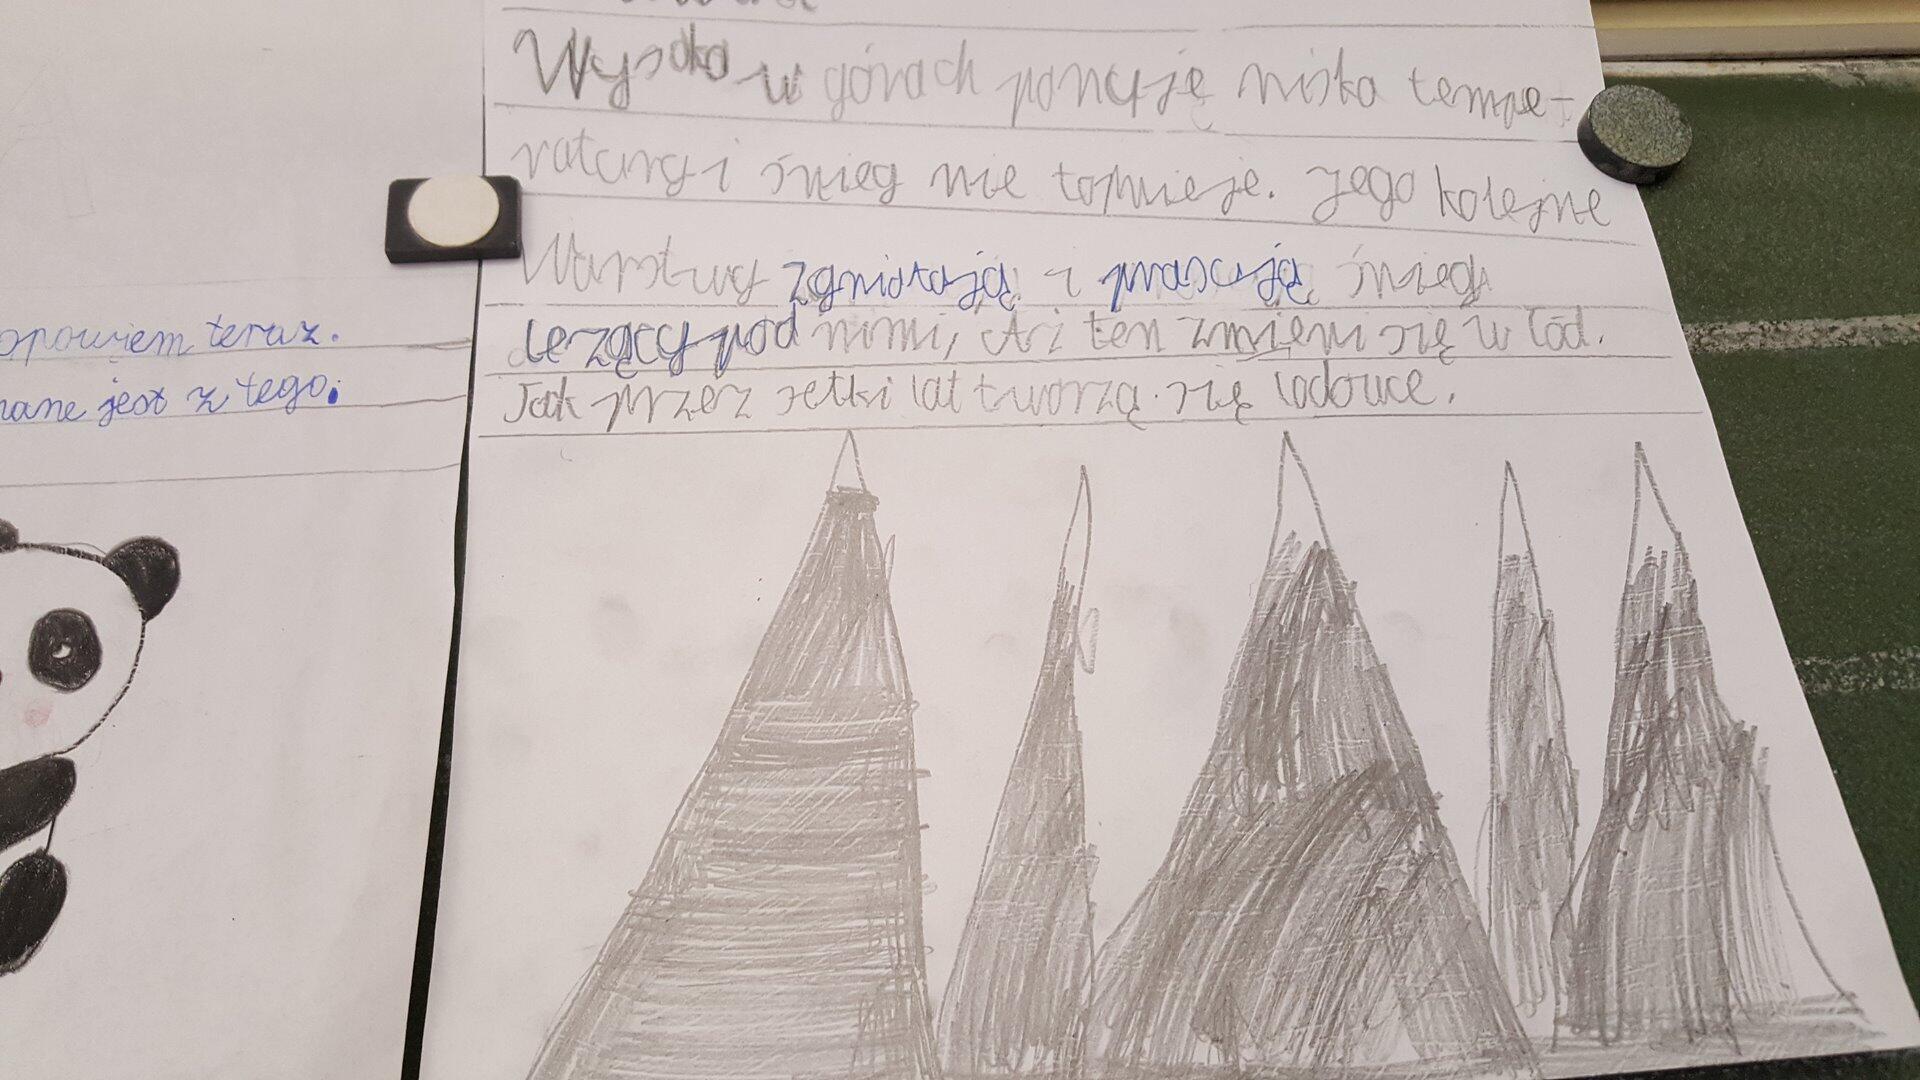 opowiem teraz.
jest z tego.
Wysoko w górach panuję niska tempe-
ratury i śnieg nie topnieje. Jego kolejne
Warstwy zgniatają i prasują śnieg
leżący pod nimi, Aż ten zmieni się w lód.
Jak przez setki lat tworzą się lodowce.